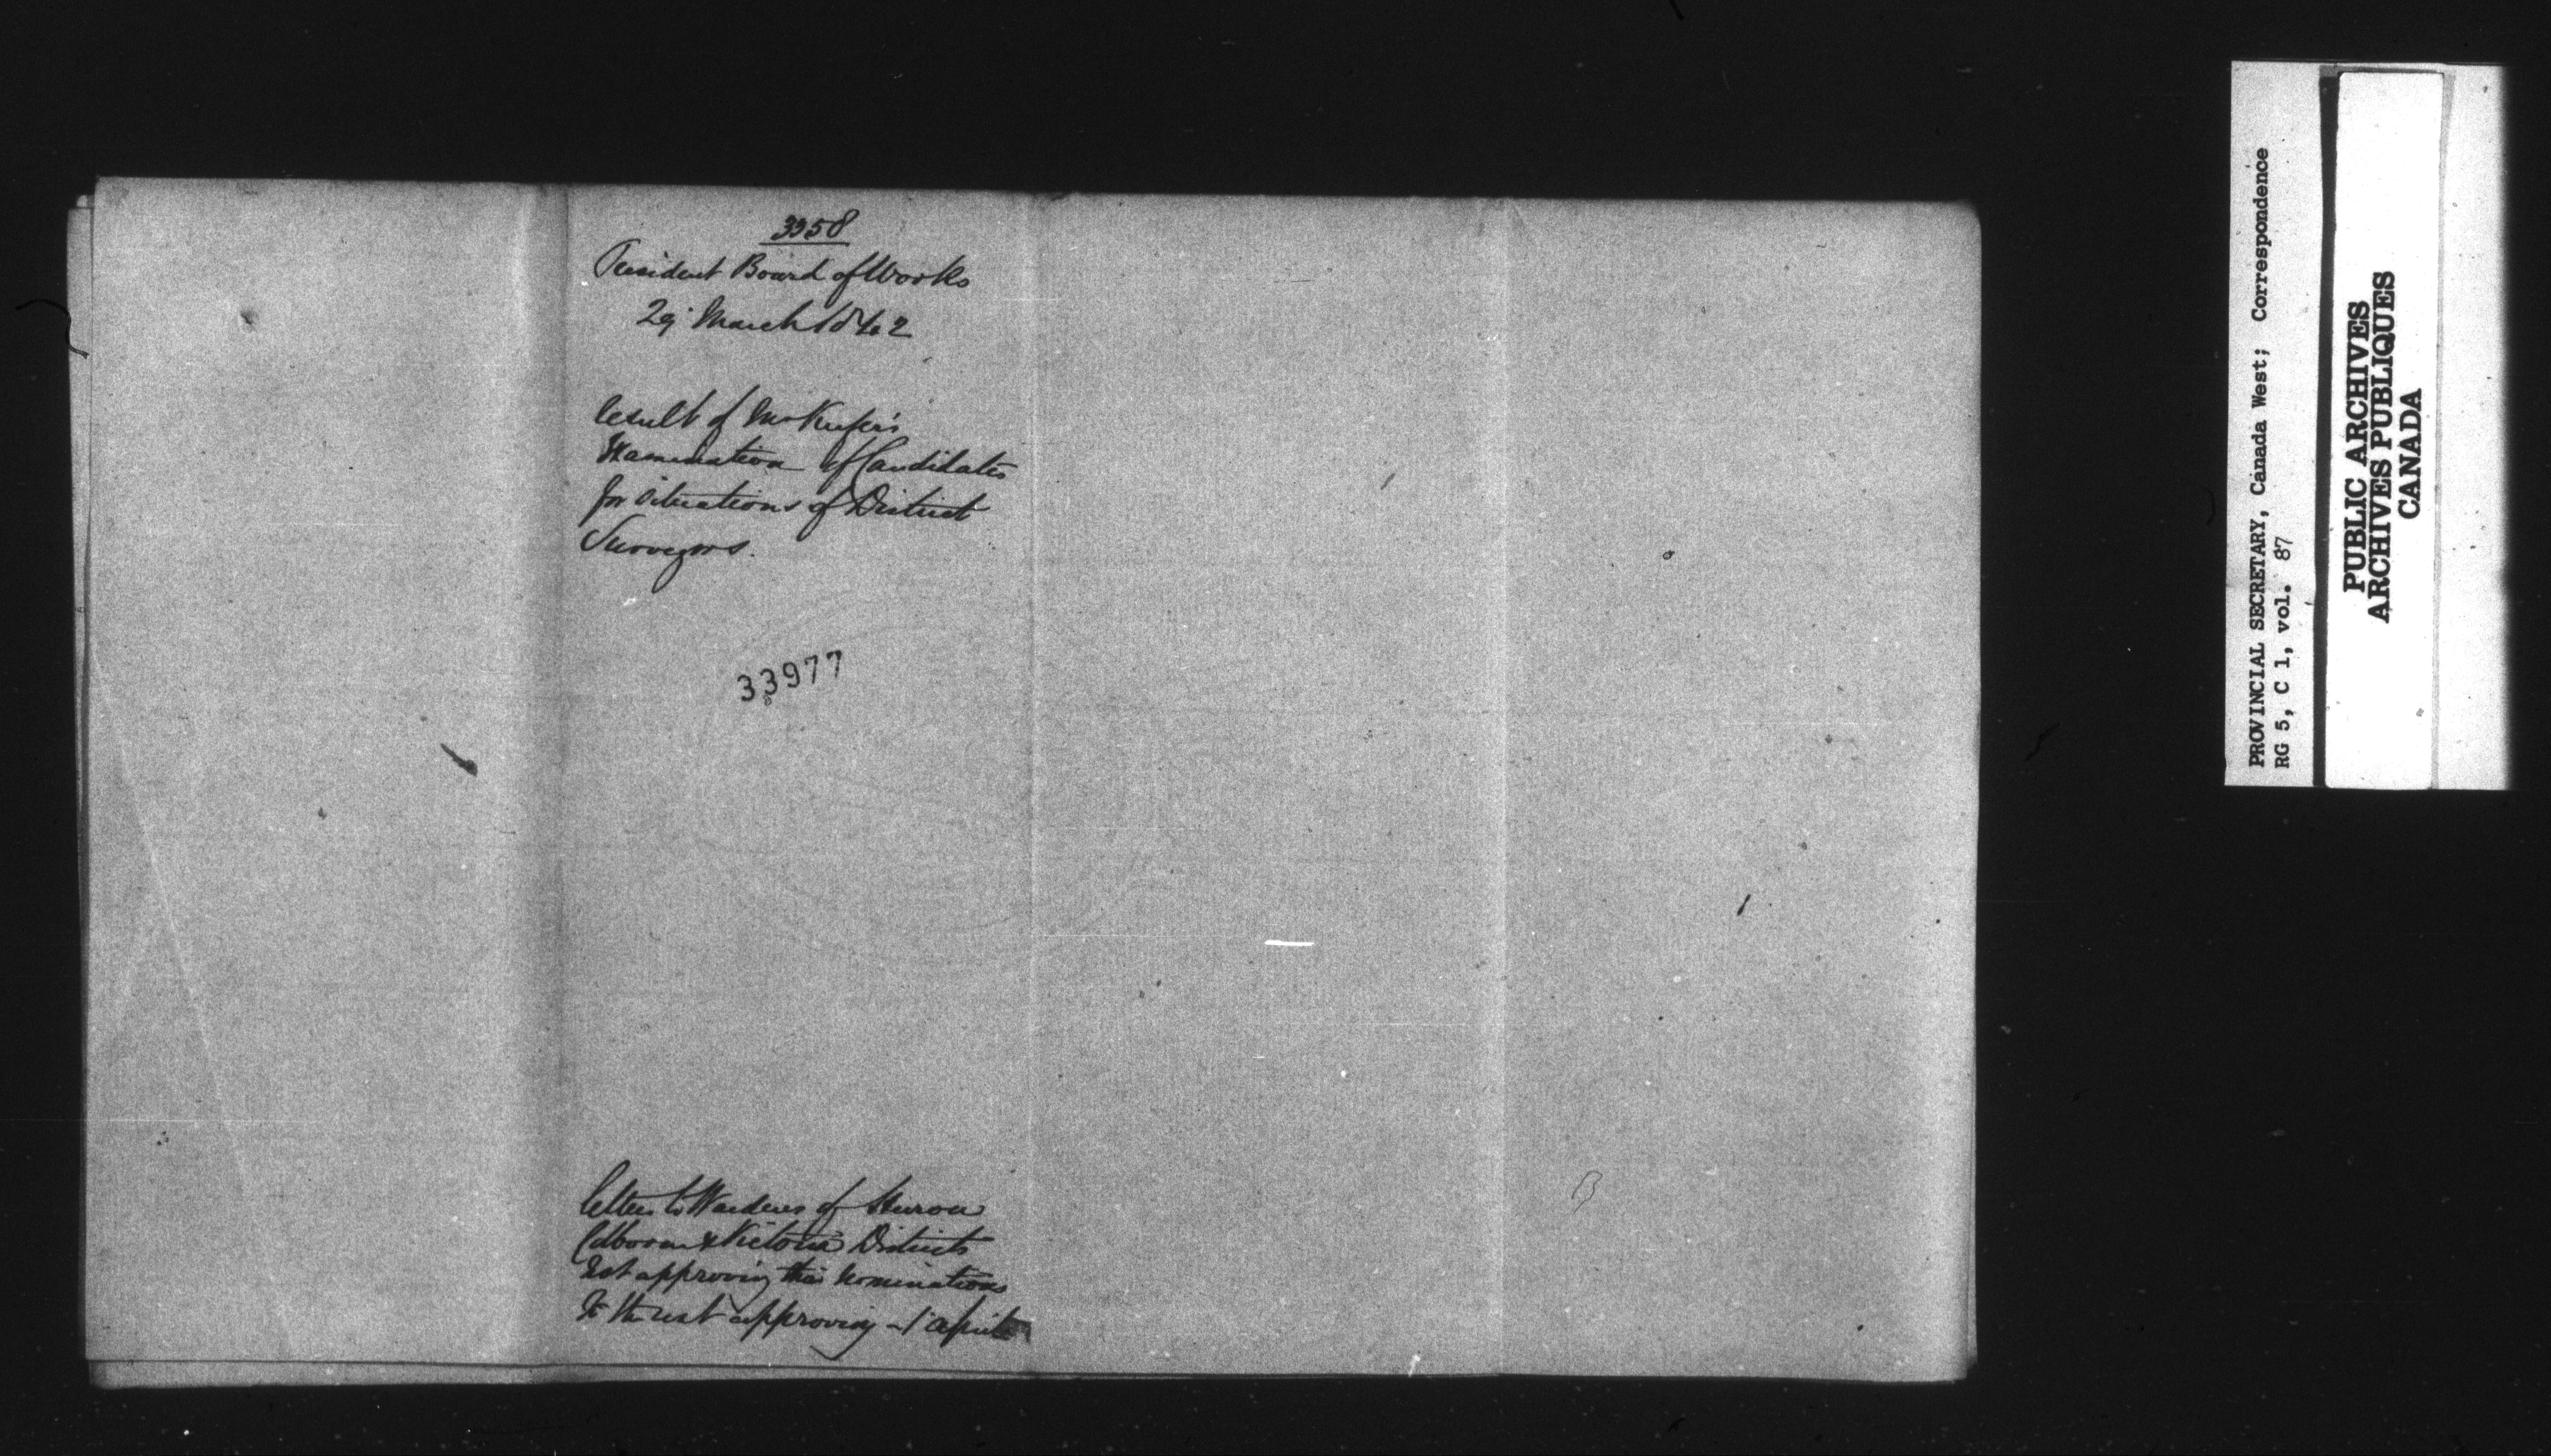 3358
President Board of Works
29 March 1842
Result of Mr Keefer's
Examination of Candidates
for situations of District
Surveyors.
33977
Letters to Wardens of Huron
Colborne & Victoria Districts
Not approving their nominations
To the rest approving - 1 April
PROVINCIAL SECRETARY, Canada West; Correspondence
RG 5, C 1, vol. 87
PUBLIC ARCHIVES
ARCHIVES PUBLIQUES
CANADA